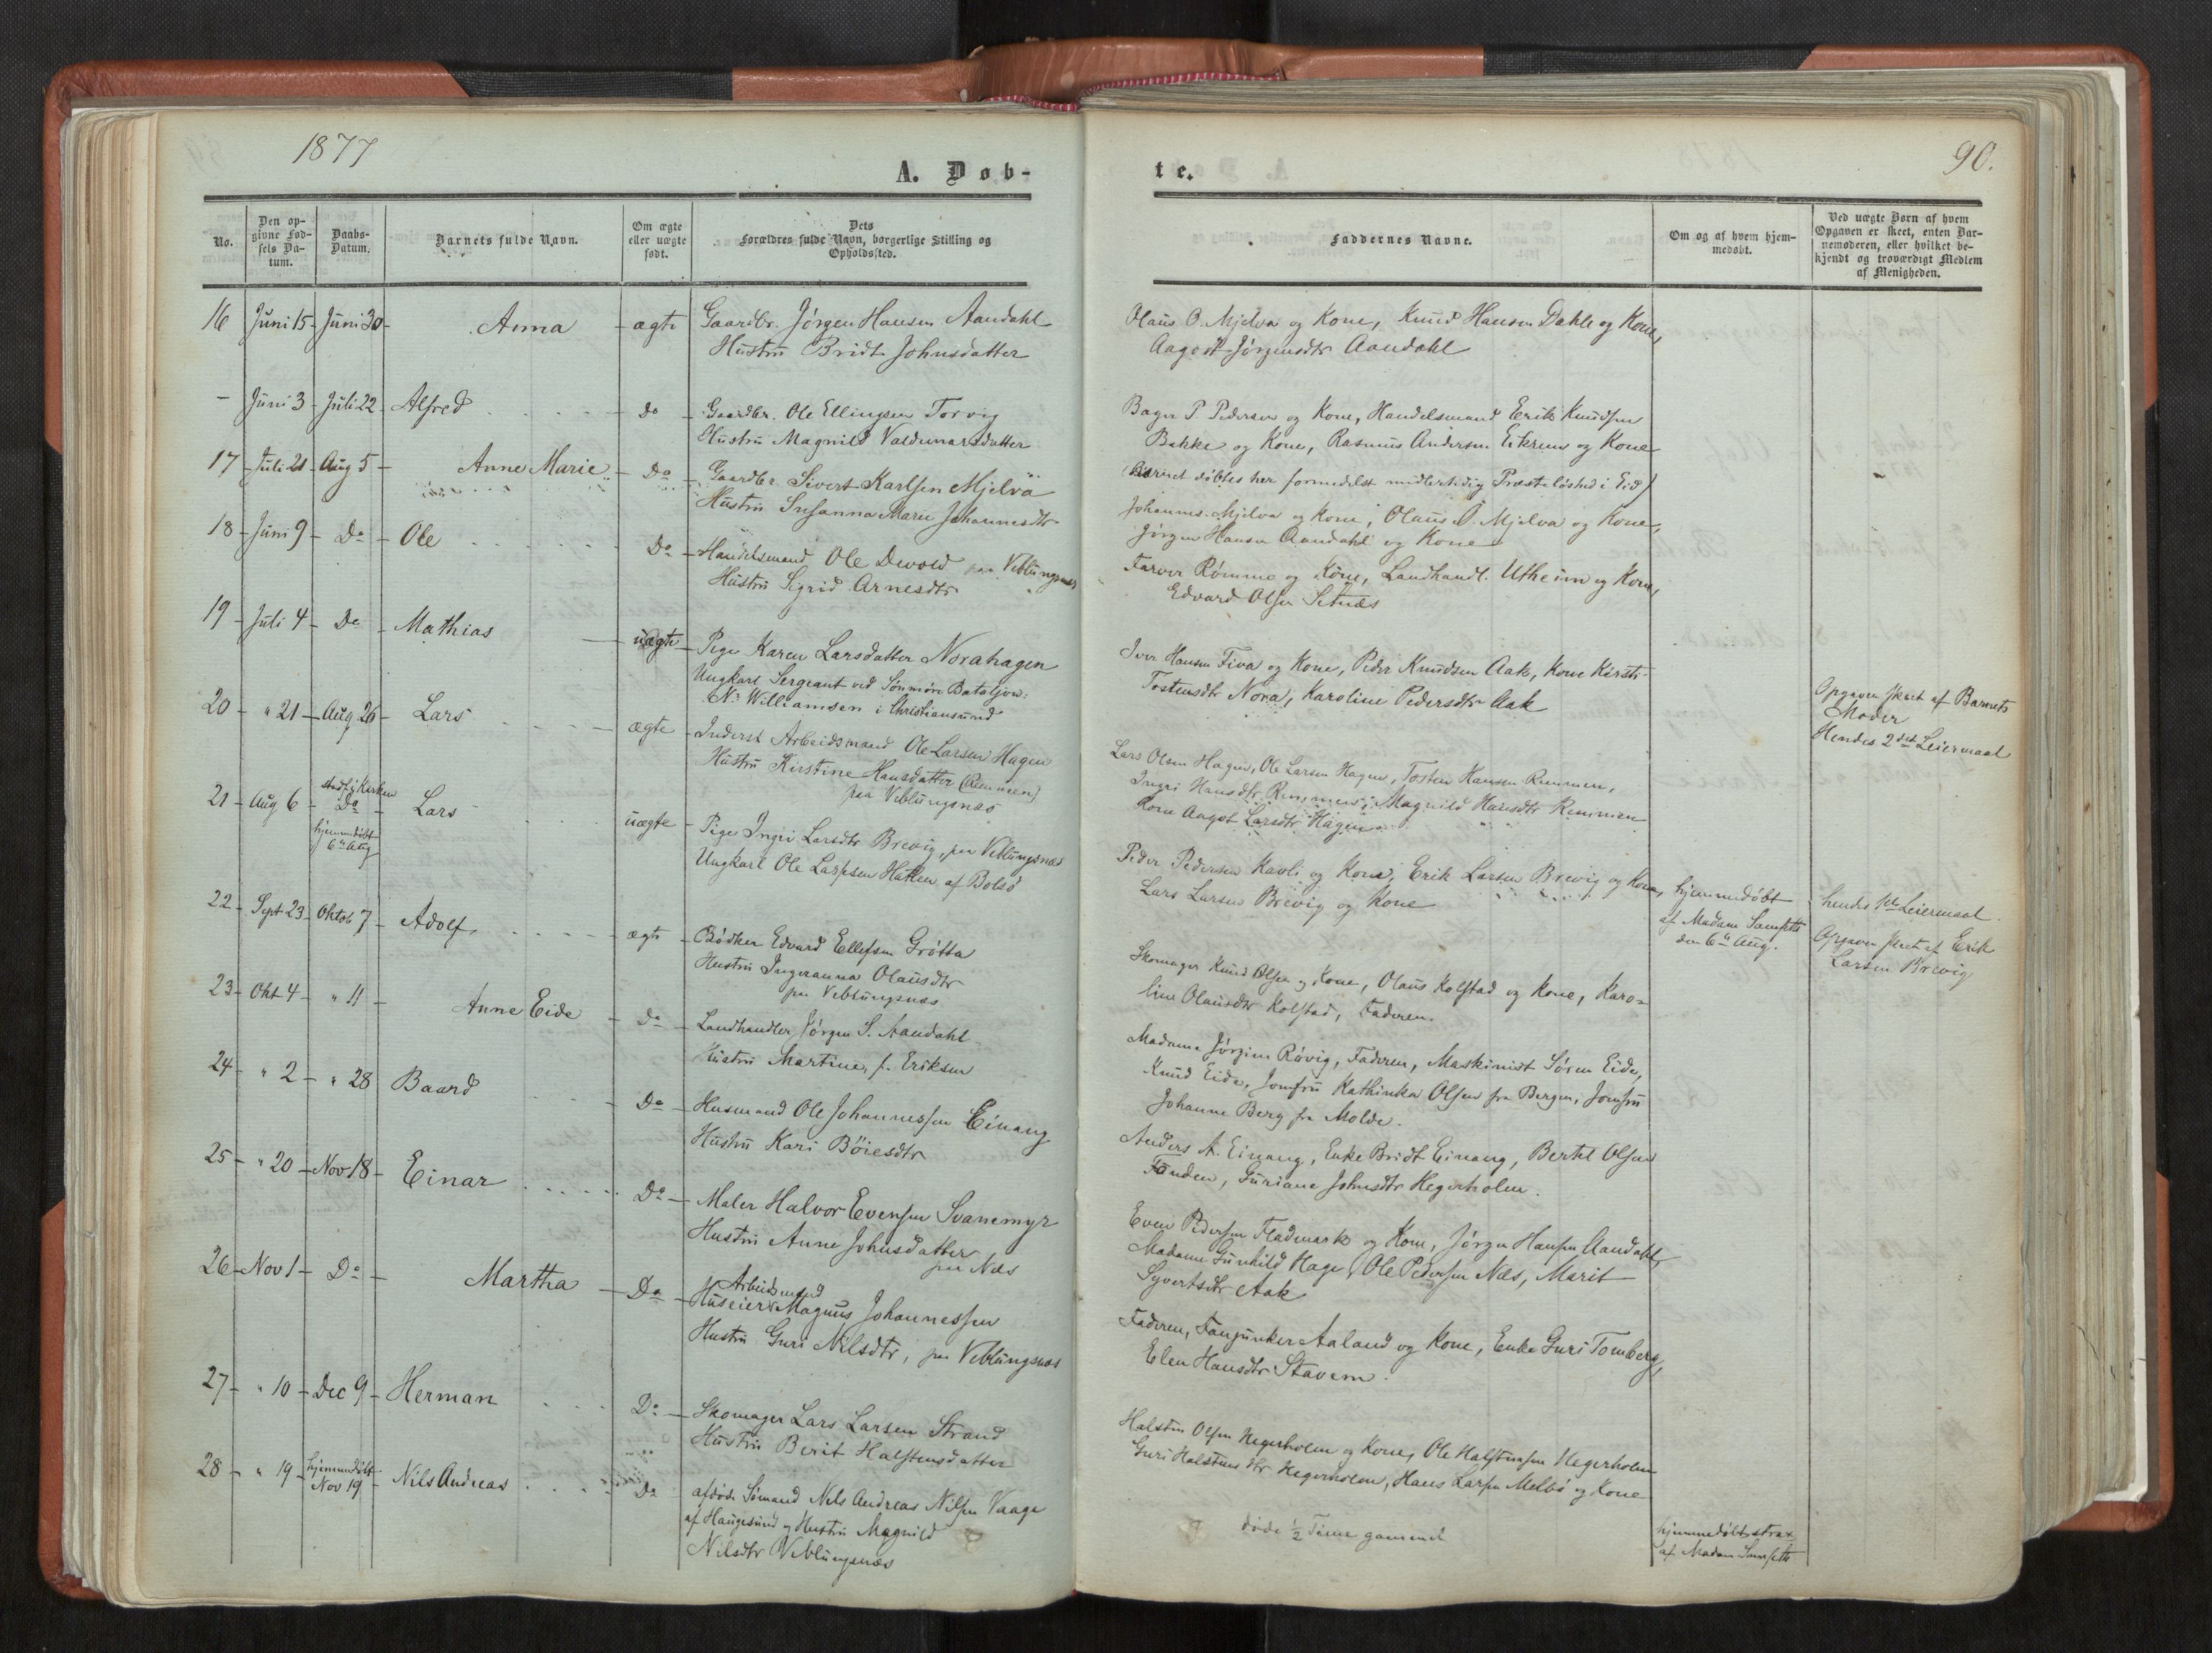 1877
A. Døb-
No.
Den op-
givne Fød-
sels Da-
tum.
Daabs-
Datum.
Barnets fulde Navn.
Om ægte
eller uægte
født.
Dets
Forældres fulde Navn, borgerlige Stilling og
Opholdssted.
16 Juni 15 - Juni 30 - Anna - ægte
Gaardbr. Jørgen Hansen Aandahl
Hustru Bridt Johnsdatter
- Juni 3 - Juli 22 - Alfred - do
Gaardbr. Ole Ellingsen Torvig
Hustru Magnild Valdemarsdatter
17 - Juli 21 - Aug 5 - Anne Marie - Do
Gaardbr. Sivert Karlsen Mjelva
Hustru Susanna Marie Johannesdtr
18 - Juni 9 - Do - Ole - Do
Handelsmand Ole Devold paa Veblungsnæs
Hustru Sigrid Arnesdtr
19 - Juli 4 - Do - Mathias - uægte
Pige Karen Larsdatter Norahagen
Ungkarl Sergeant ved Sønmøre Bataljon:
N. Williamsen i Christiansund
20 - " 21 - Aug 26 - Lars - ægte
Inderst Arbeidsmand Ole Larsen Hagen
Hustru Kirstine Hansdatter (Remmen)
paa Veblungsnæs
21 - Aug 6 - stadf. i Kirken
Do - Lars - uægte
hjemmedøbt
6te Aug
Pige Ingri Larsdtr Brevig, paa Veblungsnæs
Ungkarl Ole Larssen Hatlen af Bolsø
22 - Sept 23 - Oktob 7 - Adolf - ægte
Bødker Edvard Ellefsen Grøtta
Hustru Ingeranna Olausdtr
paa Veblungsnæs
23 - Okt 4 - " 11 - Anne Eide - Do
Landhandler Jørgen S. Aandahl
Hustru Martine, f. Eriksen
24 - " 2 - " 28 Baard - Do
Husmand Ole Johannessen Einang
Hustru Kari Bøiesdtr
25 - " 20 - Nov 18 - Einar - Do
Maler Halvor Evensen Svanemyr
Hustru Anne Johnsdatter
paa Næs
26 - Nov 1 - Do - Martha - Do
Arbeidsmand
Huseier Magnus Johannessen
Hustru Guri Nilsdtr, paa Veblungsnæs
27 - " 10 - Dec 9 - Herman - Do
Skomager Lars Larsen Strand
Hustru Berit Halstensdatter
28 - " 19 - hjemmedøbt
Nov 19 - Nils Andreas - Do
afdøde Sømand Nels Andreas Nilsen Vaage
af Haugesund og Hustru Magnild
Nilsdtr Veblungsnæs
te.
90.
Faddernes Navne.
Om og af hvem hjem-
medøbt.
Ved uægte Børn af hvem
Opgaven er skeet, enten Bar-
nemoderen, eller hvilket be-
kjendt og troværdigt Medlem
af Menigheden.
Olaus O. Mjelva og Kone, Knud Hansen Dahle og Kone,
Aagot Jørgensdtr Aandahl
Bager P Pedersen og Kone, Handelsmand Erik Knudsen
Bakke og Kone, Rasmus Andersen Eikrem og Kone
(Barnet døbtes her formedelst midlertidig Præsteløshed i Eid)
Johannes Mjelva og Kone, Olaus O. Mjelva og Kone,
Jørgen Hansen Aandahl og Kone
Farver Rømmo og Kone, Landhandl. Utheim og Kone,
Edvard Olsen Setnæs
Iver Hansen Fiva og Kone, Peder Knudsen Aak, Kone Kirsti
Tostensdtr Nora, Karoline Pedersdtr Aak
Opgaven skeet af Barnets
Moder
Hendes 2det Leiermaal
Lars Olsen Hagen, Ole Larsen Hagen, Tosten Hansen Remmen,
Ingri Hansdtr Remmen, Magnild Hansdtr Remmen
Kone Aagot Larsdtr Hagen
Peder Pedersen Kavli og Kone, Erik Larsen Brevig og Kone,
Lars Larsen Brevig og Kone
hjemmedøbt
af Madam Samseth
den 6te Aug.
hendes 1ste Leiermaal.
Opgaven skeet af Erik
Larsen Brevig
Skomager Knud Olsen og Kone, Olaus Kolstad og Kone, Karo-
line Olausdtr Kolstad, Faderen.
Madame Jørgine Røvig, Faderen, Maskinist Søren Eide,
Knud Eide, Jomfru Kathinka Olsen fra Bergen, Jomfru
Johanne Berg fra Molde.
Anders A. Einang, Enke Bridt Einang, Bertel Olsen
Fonden, Guriane Johnsdtr Hegerholm.
Even Pedersen Flademark og Kone, Jørgen Hansen Aandahl,
Madame Gunhild Hage, Ole Pedersen Næs, Marit
Syvertsdtr Aak
Faderen, Fanjunker Aaland og Kone, Enke Guri Tomberg,
Elen Hansdtr Stavem.
Halsten Olsen Hegerholm og Kone, Ole Halstensen Hegerholm
Guri Halstensdtr Hegerholm, Hans Larsen Melbø og Kone
døde ½ Time gammel
hjemmedøbt strax
af Madam Samseth